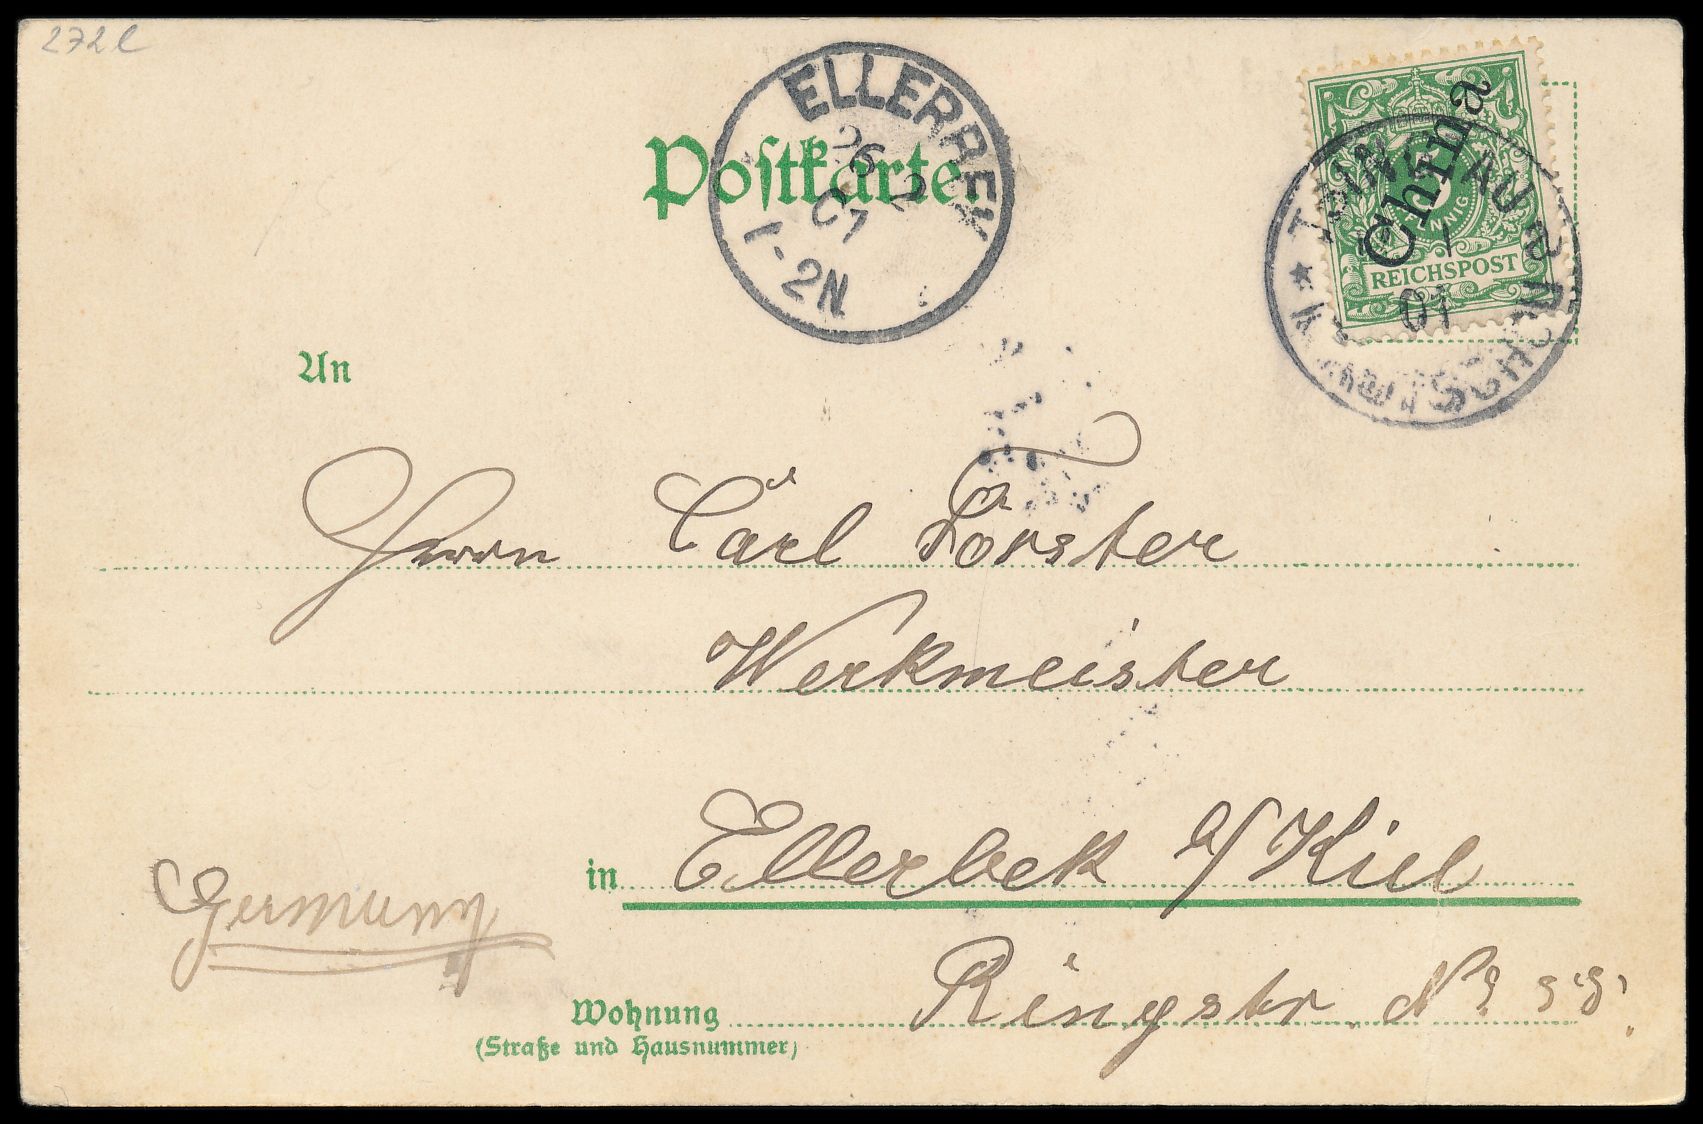 272 l
ELLERBEK
26 2
01
1-2N
Postkarte.
China
5
PFENNIG
REICHSPOST
TSINTAU
01
An
Herrn Carl Förster
Werkmeister
in Ellerbek b/Kiel
Germany
Wohnung Ringstr. No
(Straße und Hausnummer)